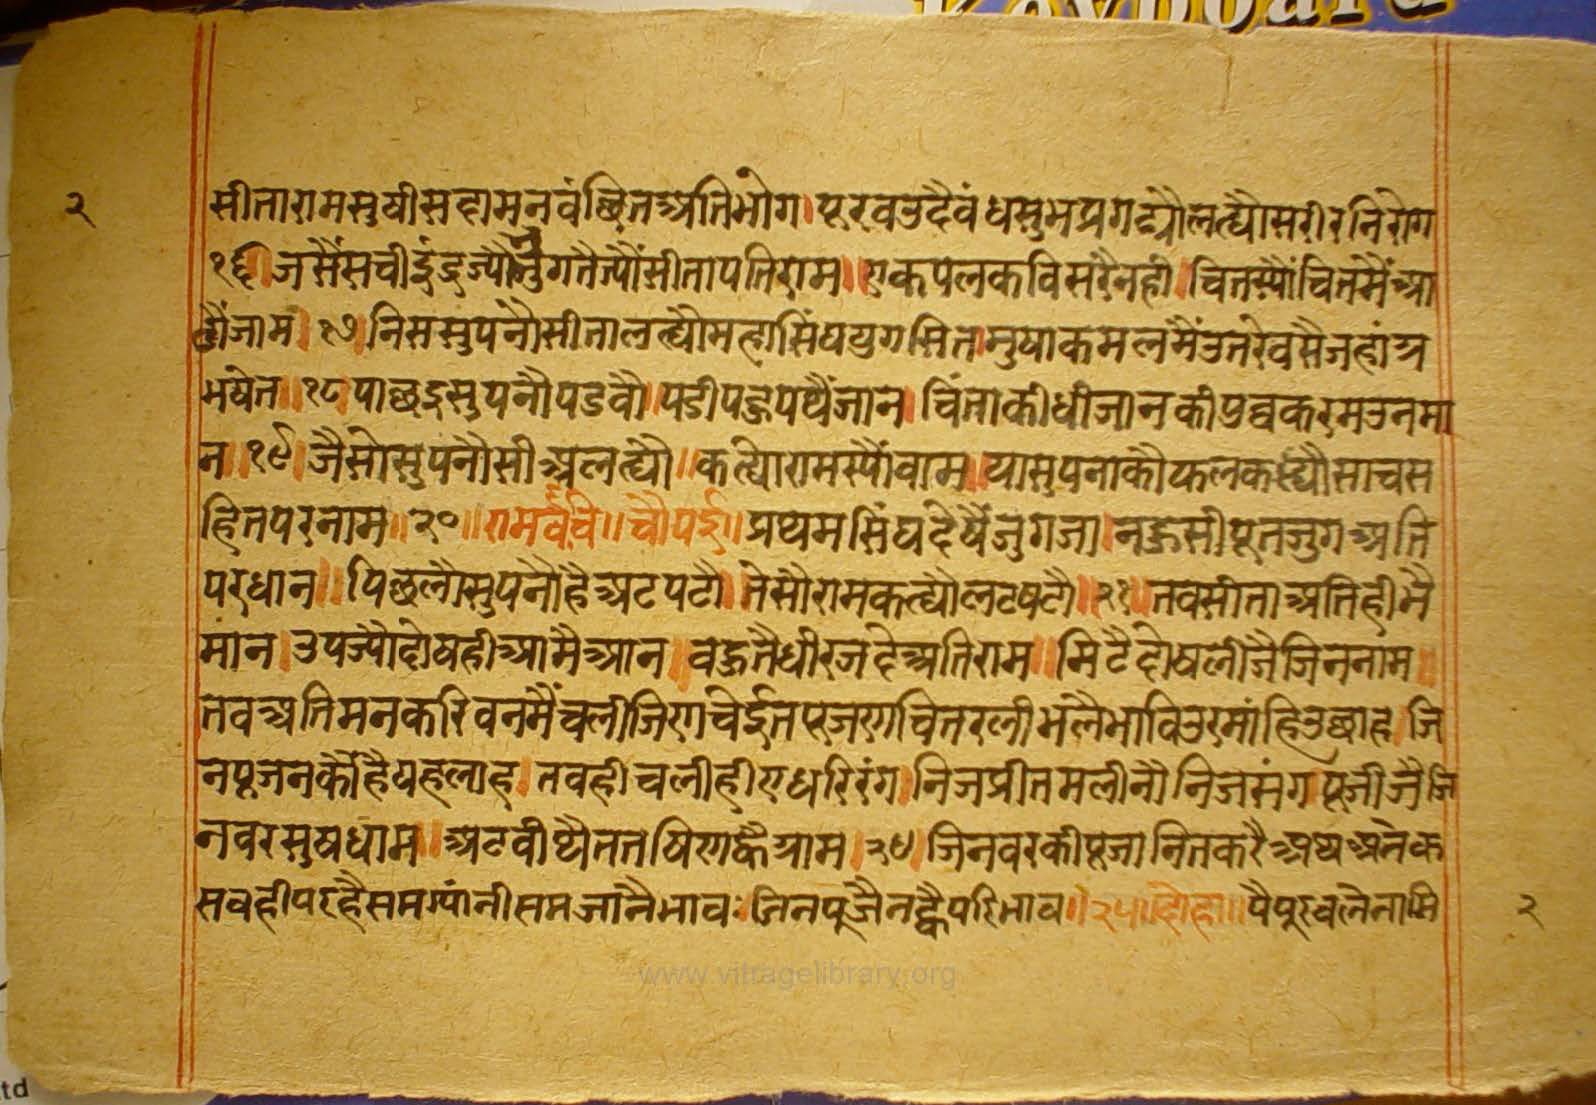 Keyboard
२
सीतारामसुषीसहामनवंछितअतिभोग।पूरवउदैवंधसुभप्रगट्यौलह्यौसरीरनिरोग
१६।जसैंसचीइंद्रज्यौनुगतैज्यौंसीतापतिराम॥एकपलकविसरैनही।चितस्यौंचितमैंआ
ठौंजाम।१७।निससुपनौसीतालह्यौमहासिंघयुगसित।मुषाकमलमैंउतरेवसैजहांअ
भषेत॥१८।पाछइसुपनौपडवौ॥पडीपहुपथैंजान।चिंताकीधीजानकीपुव्वकरमउनमा
न॥१९।जैसोसुपनौसीअलह्यौ॥कह्योरामस्यौंवाम॥यासुपनाकौफलकह्यौसाचस
हितपरनाम॥२०॥रामवचं॥चौपई॥प्रथमसिंघदेषैजुगजा।नहुसीपूतजुगअति
परधान॥पिछलौसुपनौहैअटपटौ।तेसौरामकह्यौलटषटौ॥२१॥तवसीताअतिहीभै
मांन।उपज्यौदोषहीआमैआन।वहुतैधीरजदेअतिराम॥मिटैदोषलीजैजिननाम॥
तेवअतिमनकरिवनमैंचलीजिएाचेईतपूजएाचितरलीभलैभाविउरमांहिउछाह।जि
नपूजनकौहैयहलाह।तवहीचलीहीएधरिरंग।निजप्रीतमलीनौनिजसंग।पूजीजैजि
नवरसुषधाम॥अटवीथैततषिएाकैयाम।२४।जिनवरकीपूजानितकरैअथअनेक
सवहीपरहैसमग्यांनीसमजांनैभाव।जिनपूजैनह्वैपरिभाव॥२५॥दोहा॥पैपूरवलैनामि
२
www.vitragelibrary.org
td